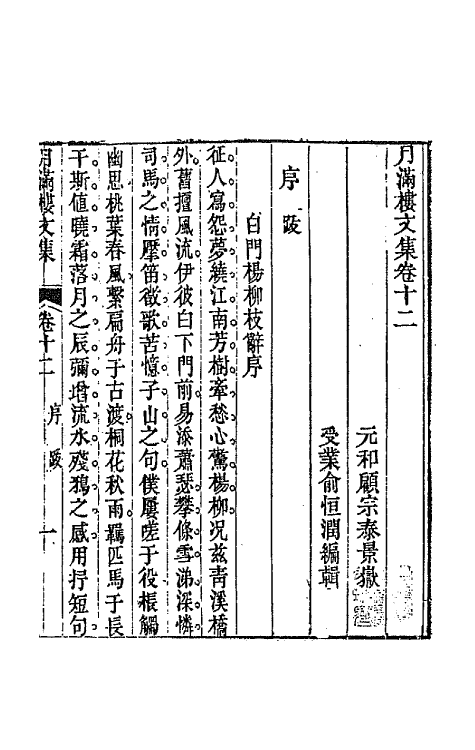 月滿樓文集卷十二
元和顧宗泰景嶽
受業俞恒潤編輯
序跋
白門楊柳枝辭序
征人寫怨夢繞江南芳樹牽愁心驚楊柳况兹靑溪橋
外舊擅風流伊彼白下門前易添蕭瑟攀條雪涕深憐
司馬之情壓笛徵歌苦憶子山之句僕屢嗟于役棖觸
幽思桃葉春風繫扁舟于古渡桐花秋雨羈匹馬于長
干斯值曉霜落月之辰彌增流水殘鴉之感用抒短句
月滿樓文集
卷十二
序跋
一